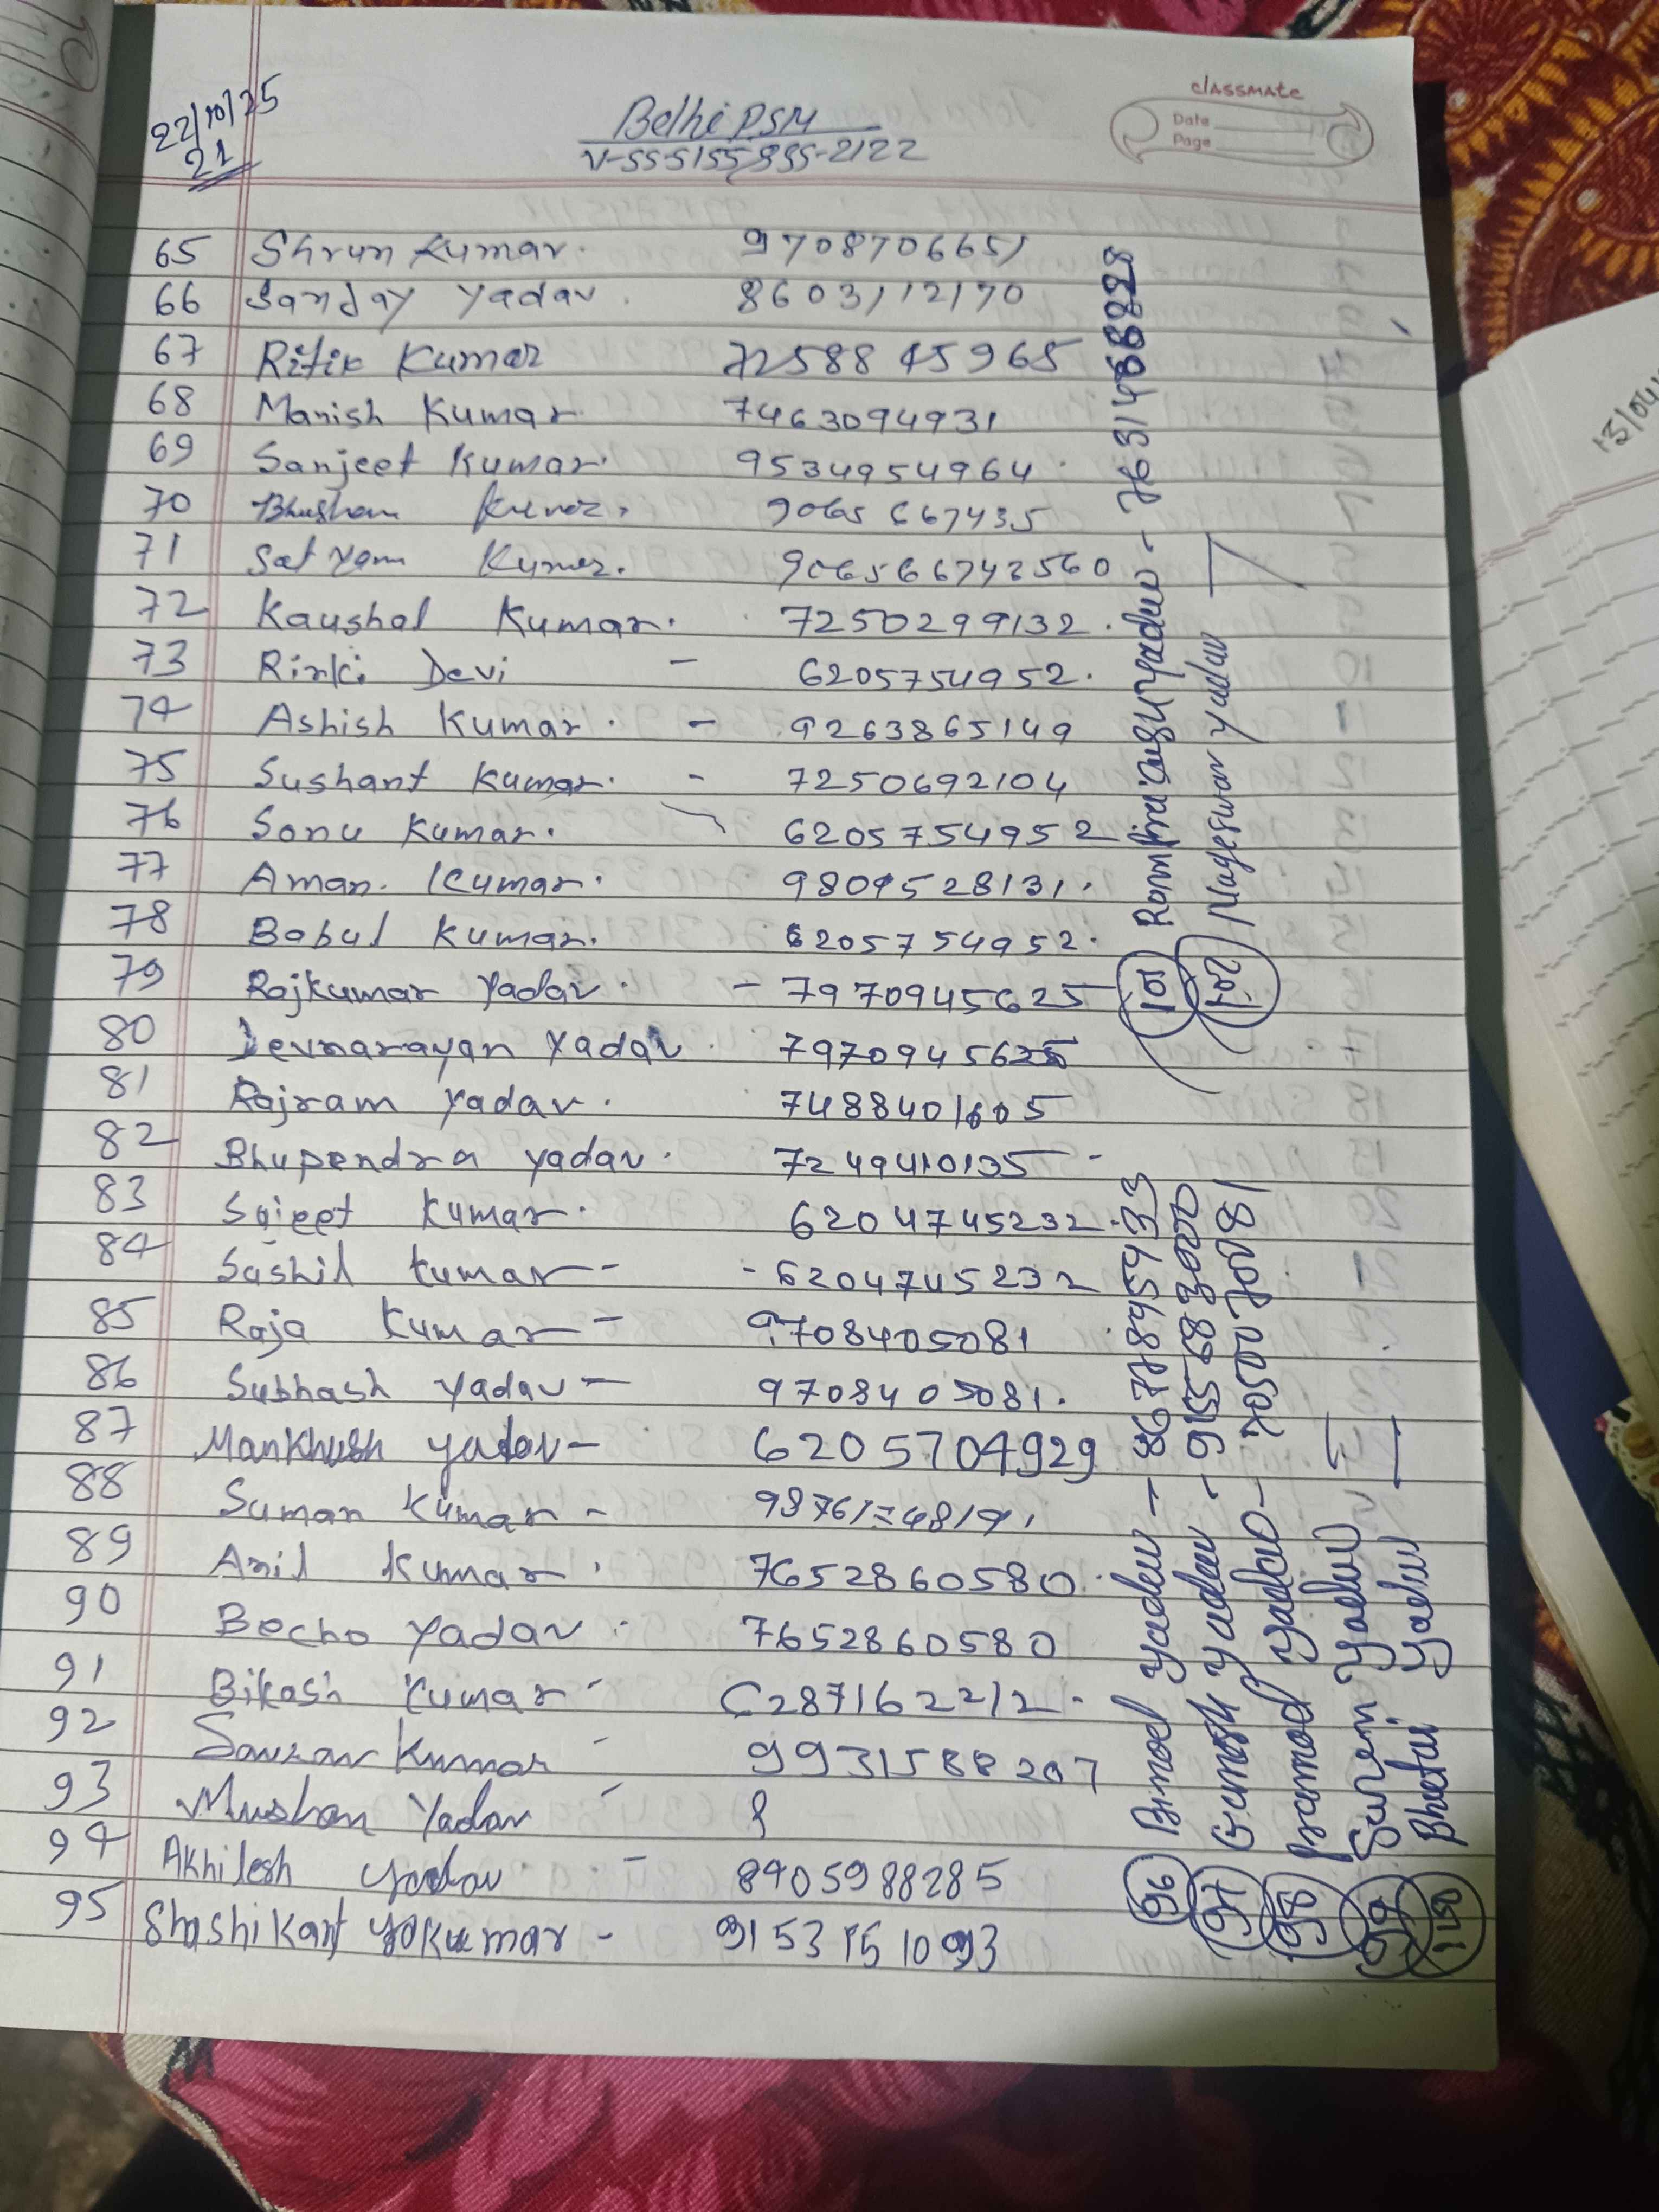 22/10/25
21
Belhi PSM
V-SS-5155,895-2122
classmate
Date
Page
65 Shrun Kumar. 9708706651
66 Sanjay Yadav. 8603112170
67 Ritik Kumar 7258845965
68 Manish Kumar 7463094931
69 Sanjeet Kumar. 9534954964
70 Bhushan Kumar. 9065667435
71 Satyam Kumar. 906566742560
72 Kaushal Kumar. 7250299132.
73 Rinki Devi - 6205754952.
74 Ashish Kumar. - 9263865149
75 Sushant Kumar. - 7250692104
76 Sonu Kumar. 6205754952
77 Aman. Kumar. 9809528131.
78 Babul Kumar. 6205754952.
79 Rajkumar Yadav. - 7970945625
80 Devnarayan Yadav. 7970945625
81 Rajram Yadav. 7488401605
82 Bhupendra Yadav. 7249410135 -
83 Sajeet Kumar. 6204745232.
84 Sashil Kumar - - 6204745232
85 Raja Kumar - 9708405081
86 Subhash Yadav - 9708405081.
87 Mankhush Yadav - 6205704929
88 Suman Kumar -
89 Anil Kumar. 7652860580.
90 Becho Yadav. 7652860580
91 Bikash Kumar - 6287162212.
92 Saurav Kumar - 9931588207
93 Yadav
94 Akhilesh Yadav - 8405988285
95 Shashikant Kumar -
96 Binod Yadav - 8677895933
97 Yadav - 9155683000
98 Pramod Yadav - 7050070081
99 Suren Yadav
100 Yadav
101 Yadav - 7631488828
102 Nageswar Yadav